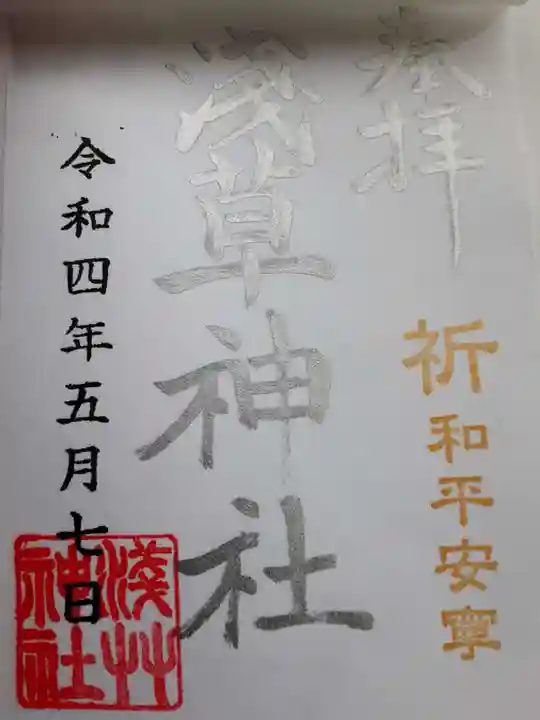 奉拝
祈和平安寧
浅草神社
令和四年五月七日
淺艸
神社